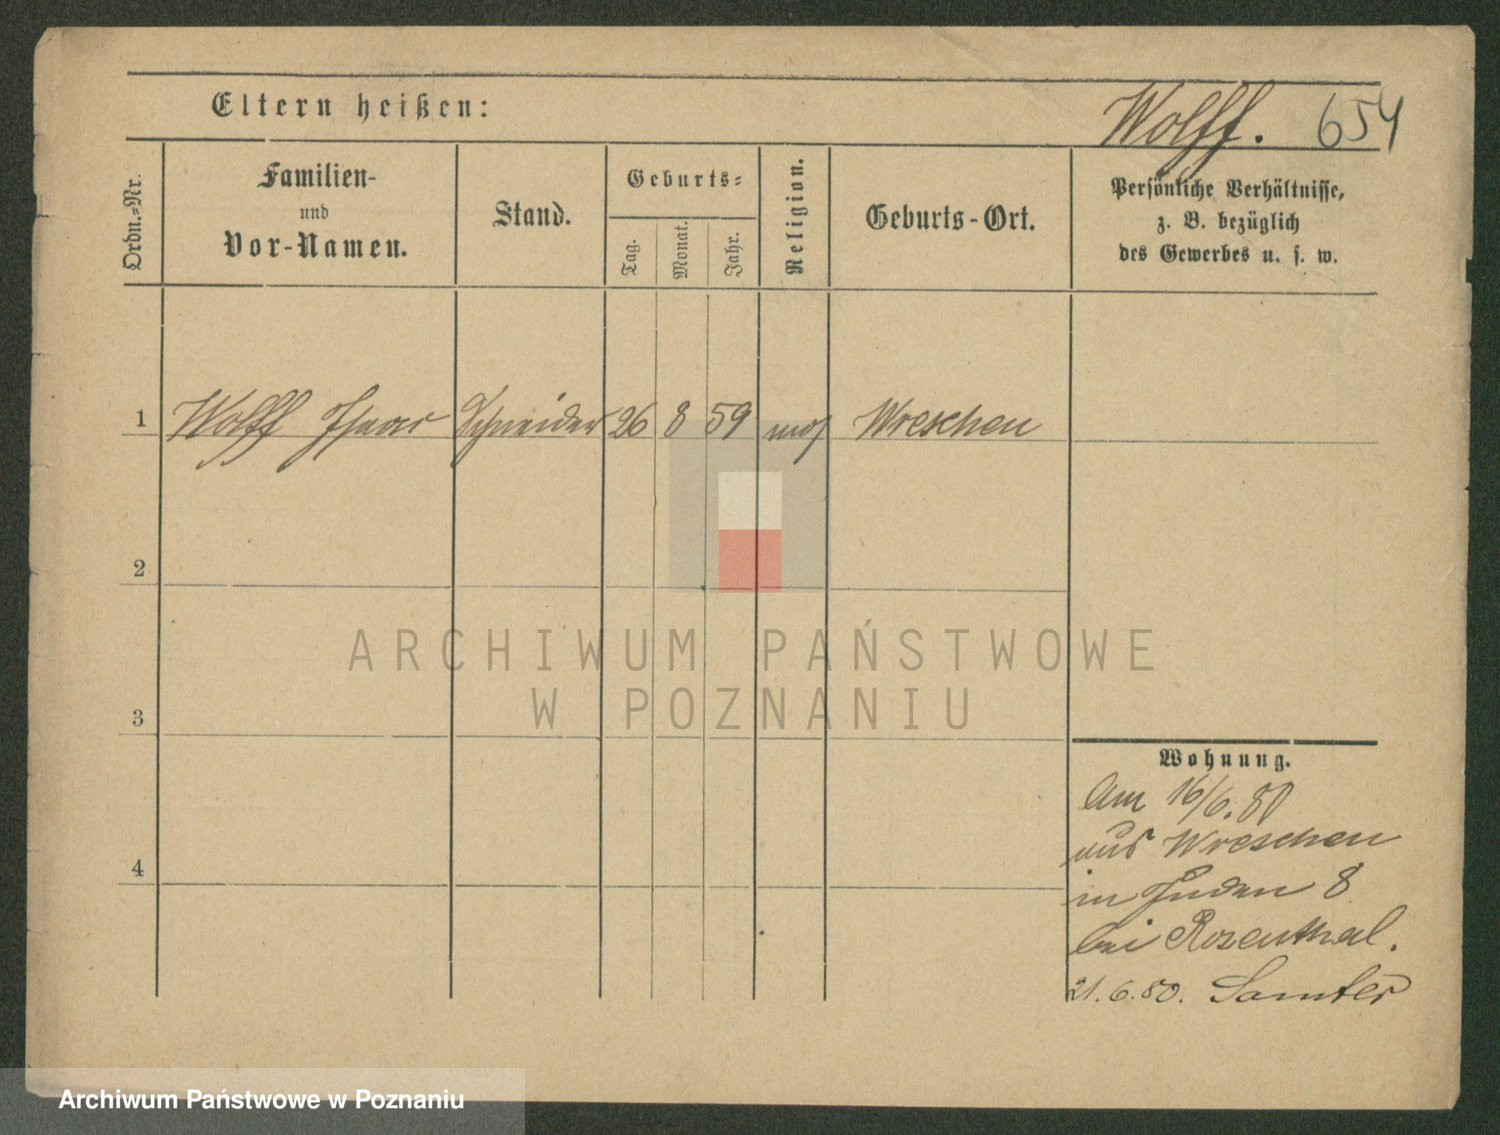 Eltern heißen:
Wolff. 654
Ordn.=Nr.
Familien-
und
Vor-Namen.
Stand.
Geburts=
Tag.
Monat.
Jahr.
Religion.
Geburts-Ort.
Persönliche Verhältnisse,
z. B. bezüglich
des Gewerbes u. s. w.
1 Wolff Isaac Schneider 26 8 59 mos Wreschen
2
ARCHIWUM PAŃSTWOWE
W POZNANIU
3
Wohnung.
Am 16/6. 80
aus Wreschen
4
in Juden 8
bei Rosenthal.
21.6.80. Samter
Archiwum Państwowe w Poznaniu